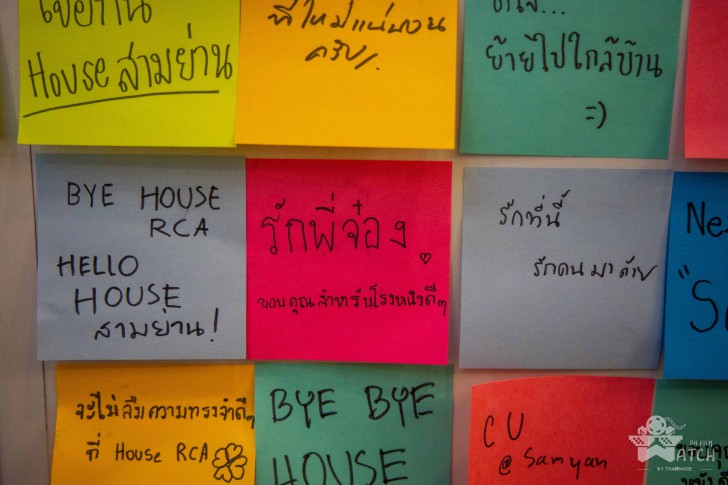 House สามย่าน
ที่ใหม่แน่นอน
ครับ
ย้ายไปใกล้บ้าน
=)
BYE HOUSE
RCA
HELLO
HOUSE
สามย่าน!
รักพี่จ๋อง
ขอบคุณสำหรับโรงหนังดีๆ
รักที่นี่
รักคนมาด้วย
Ne
"S
จะไม่ลืมความทรงจำดีๆ
ที่ House RCA
BYE BYE
HOUSE
CU
@ Samyan
DR.FILM
ATCH
BY THAIWARE